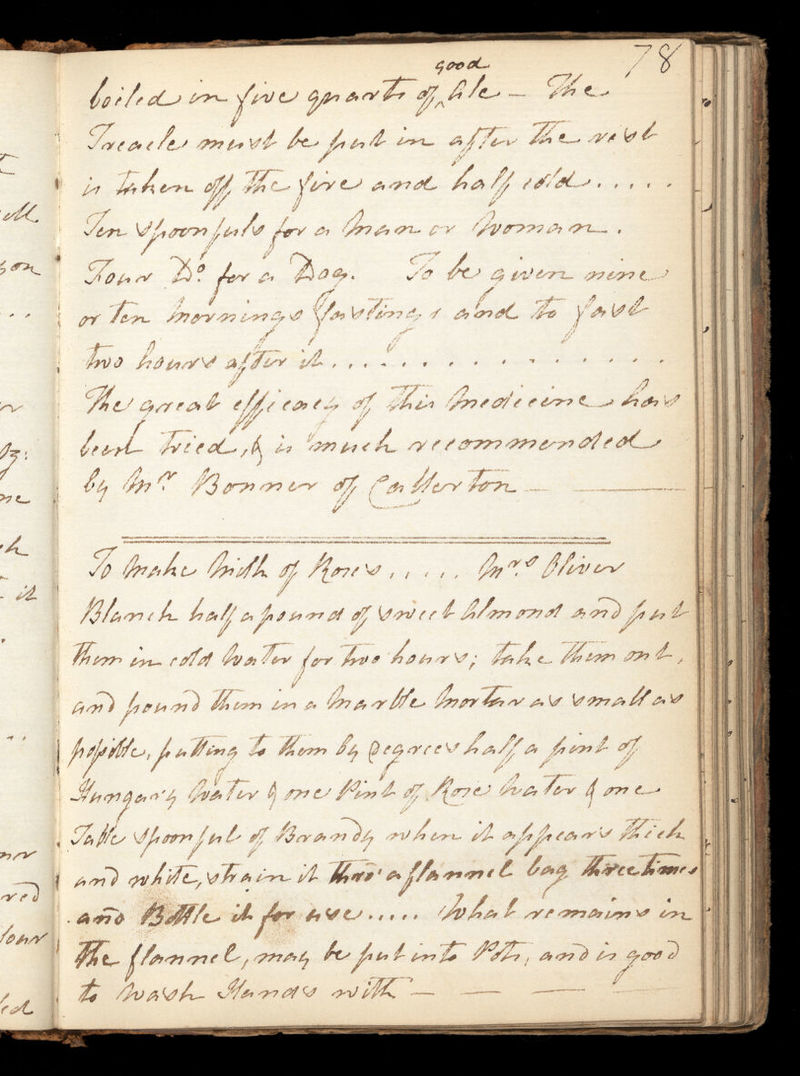 78
boiled in five quarts of good Ale — The
Treacle must be put in after the rest
is taken off the fire and half cold.....
Ten spoonfuls for a Man or Woman.
Four Do. for a Dog. To be given nine
or ten Mornings fastings and to fast
two hours after it................
The great efficacy of this Medicine has
been tried, & is much recommended
by Mr. Bonner of Callerton —
To Make Milk of Roses..... Mrs Oliver
Blanch half a pound of sweet Almond and put
them in cold Water for two hours; take them out,
and pound them in a Marble Mortar as small as
possible, putting to them by Degrees half a pint of
Hungary Water & one Pint of Rose Water & one
Table spoonful of Brandy when it appears thick
and white, strain it thro' a flannel bag three times
and Bottle it for use..... What remains in
the flannel, may be put into Pots, and is good
to Wash Hands with — — — —